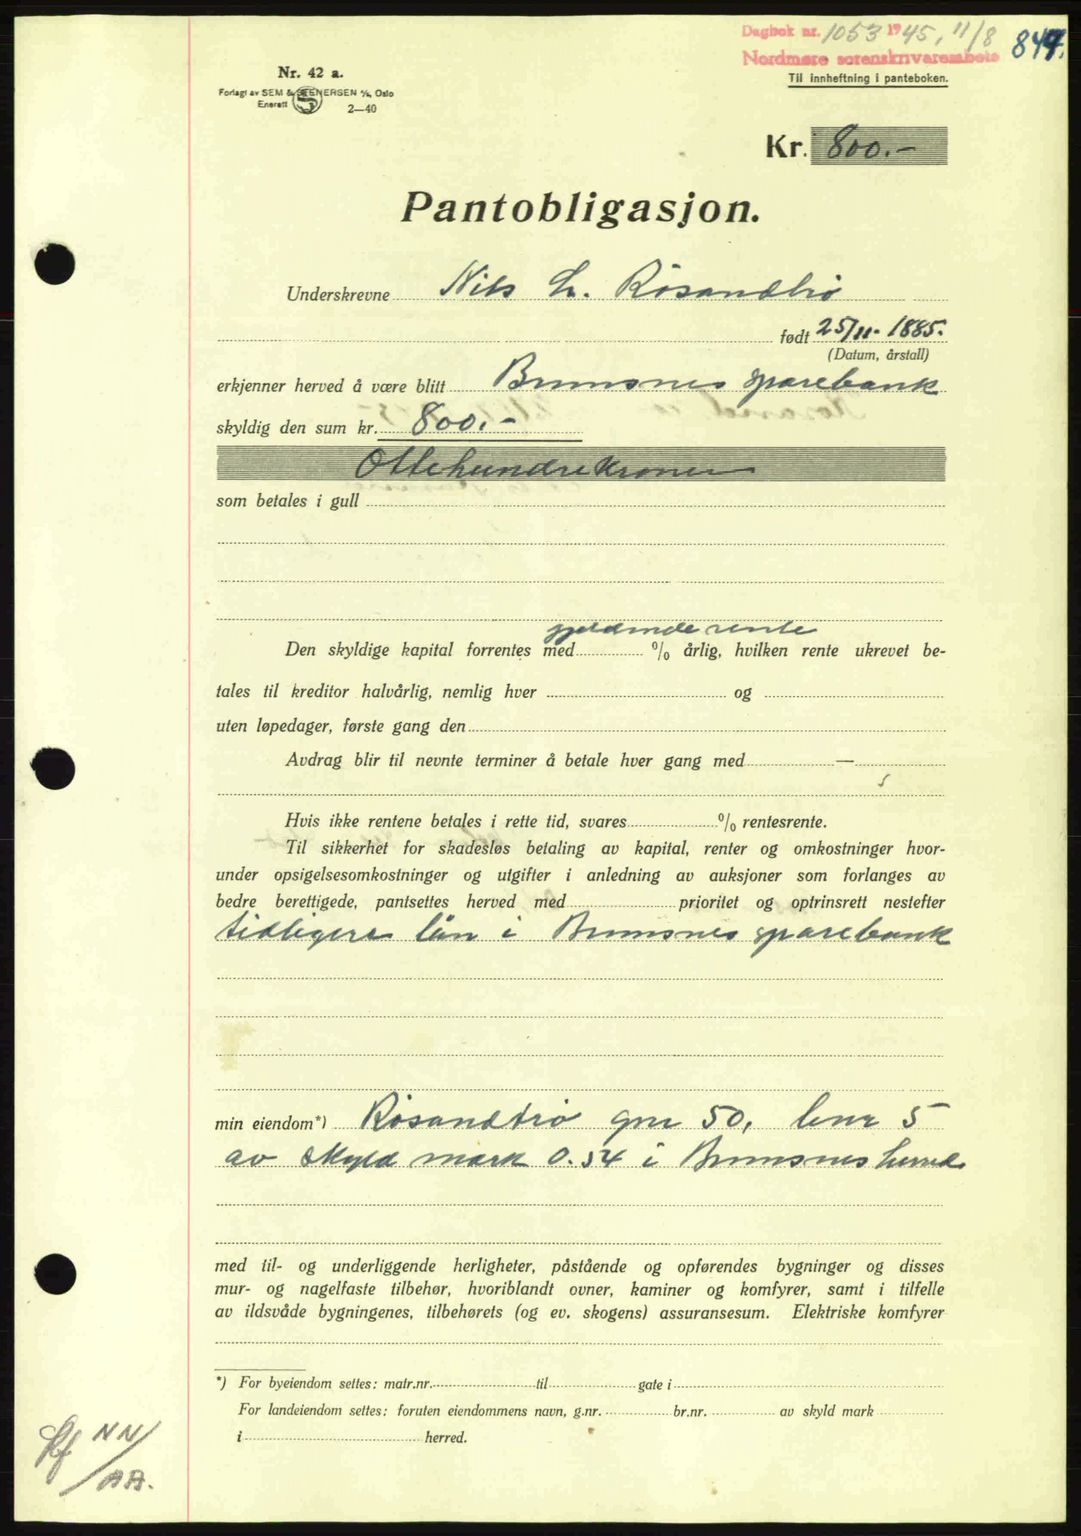 Dagbok nr. 1053 1945, 11/8 847.
Nordmøre sorenskriverembete
Til innheftning i panteboken.
Nr. 42 a.
Forlagt av SEM & STENERSEN A/S, Oslo
Enerett S 2—40
Kr. 800.-
Pantobligasjon.
Underskrevne Nils L. Røsandtrø
født 25/11- 1885.
(Datum, årstall)
erkjenner herved å være blitt Bremsnes sparebank
skyldig den sum kr. 800.-
Ottehundrekroner
som betales i gull
gjeldende rente
Den skyldige kapital forrentes med % årlig, hvilken rente ukrevet be-
tales til kreditor halvårlig, nemlig hver og
uten løpedager, første gang den
Avdrag blir til nevnte terminer å betale hver gang med —
Hvis ikke rentene betales i rette tid, svares % rentesrente.
Til sikkerhet for skadesløs betaling av kapital, renter og omkostninger hvor-
under opsigelsesomkostninger og utgifter i anledning av auksjoner som forlanges av
bedre berettigede, pantsettes herved med prioritet og optrinsrett nestefter
tidligere lån i Bremsnes sparebank
min eiendom*) Røsandtrø gnr 50, bnr 5
av skyld mark 0.54 i Bremsnes herred.
med til- og underliggende herligheter, påstående og opførendes bygninger og disses
mur- og nagelfaste tilbehør, hvoriblandt ovner, kaminer og komfyrer, samt i tilfelle
av ildsvåde bygningenes, tilbehørets (og ev. skogens) assuransesum. Elektriske komfyrer
*) For byeiendom settes: matr.nr. til gate i
For landeiendom settes: foruten eiendommens navn, g.nr. br.nr. av skyld mark
i herred.
NN/
AA.